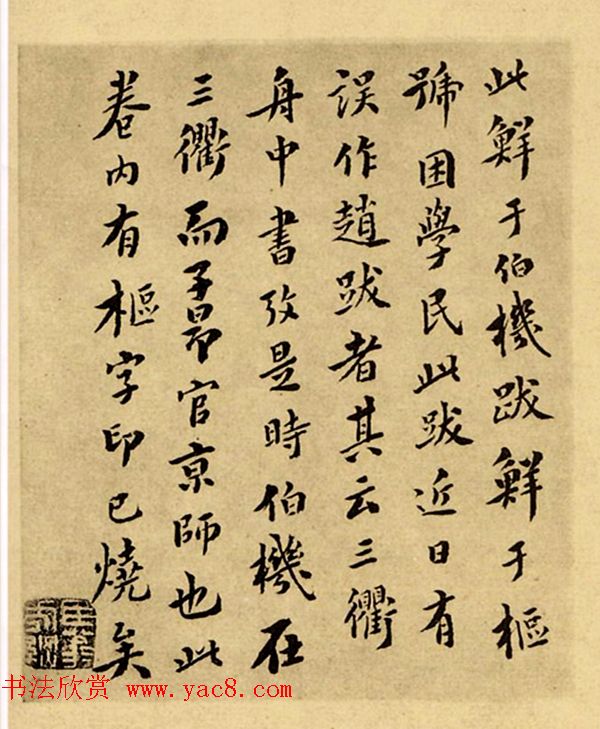 此鮮于伯機跋鮮于樞
號困學民此跋近日有
誤作趙跋者其云三衢
舟中書攷是時伯機在
三衢而子昂官京師也此
卷内有樞字印已燒矣
书法欣赏 www.yac8.com